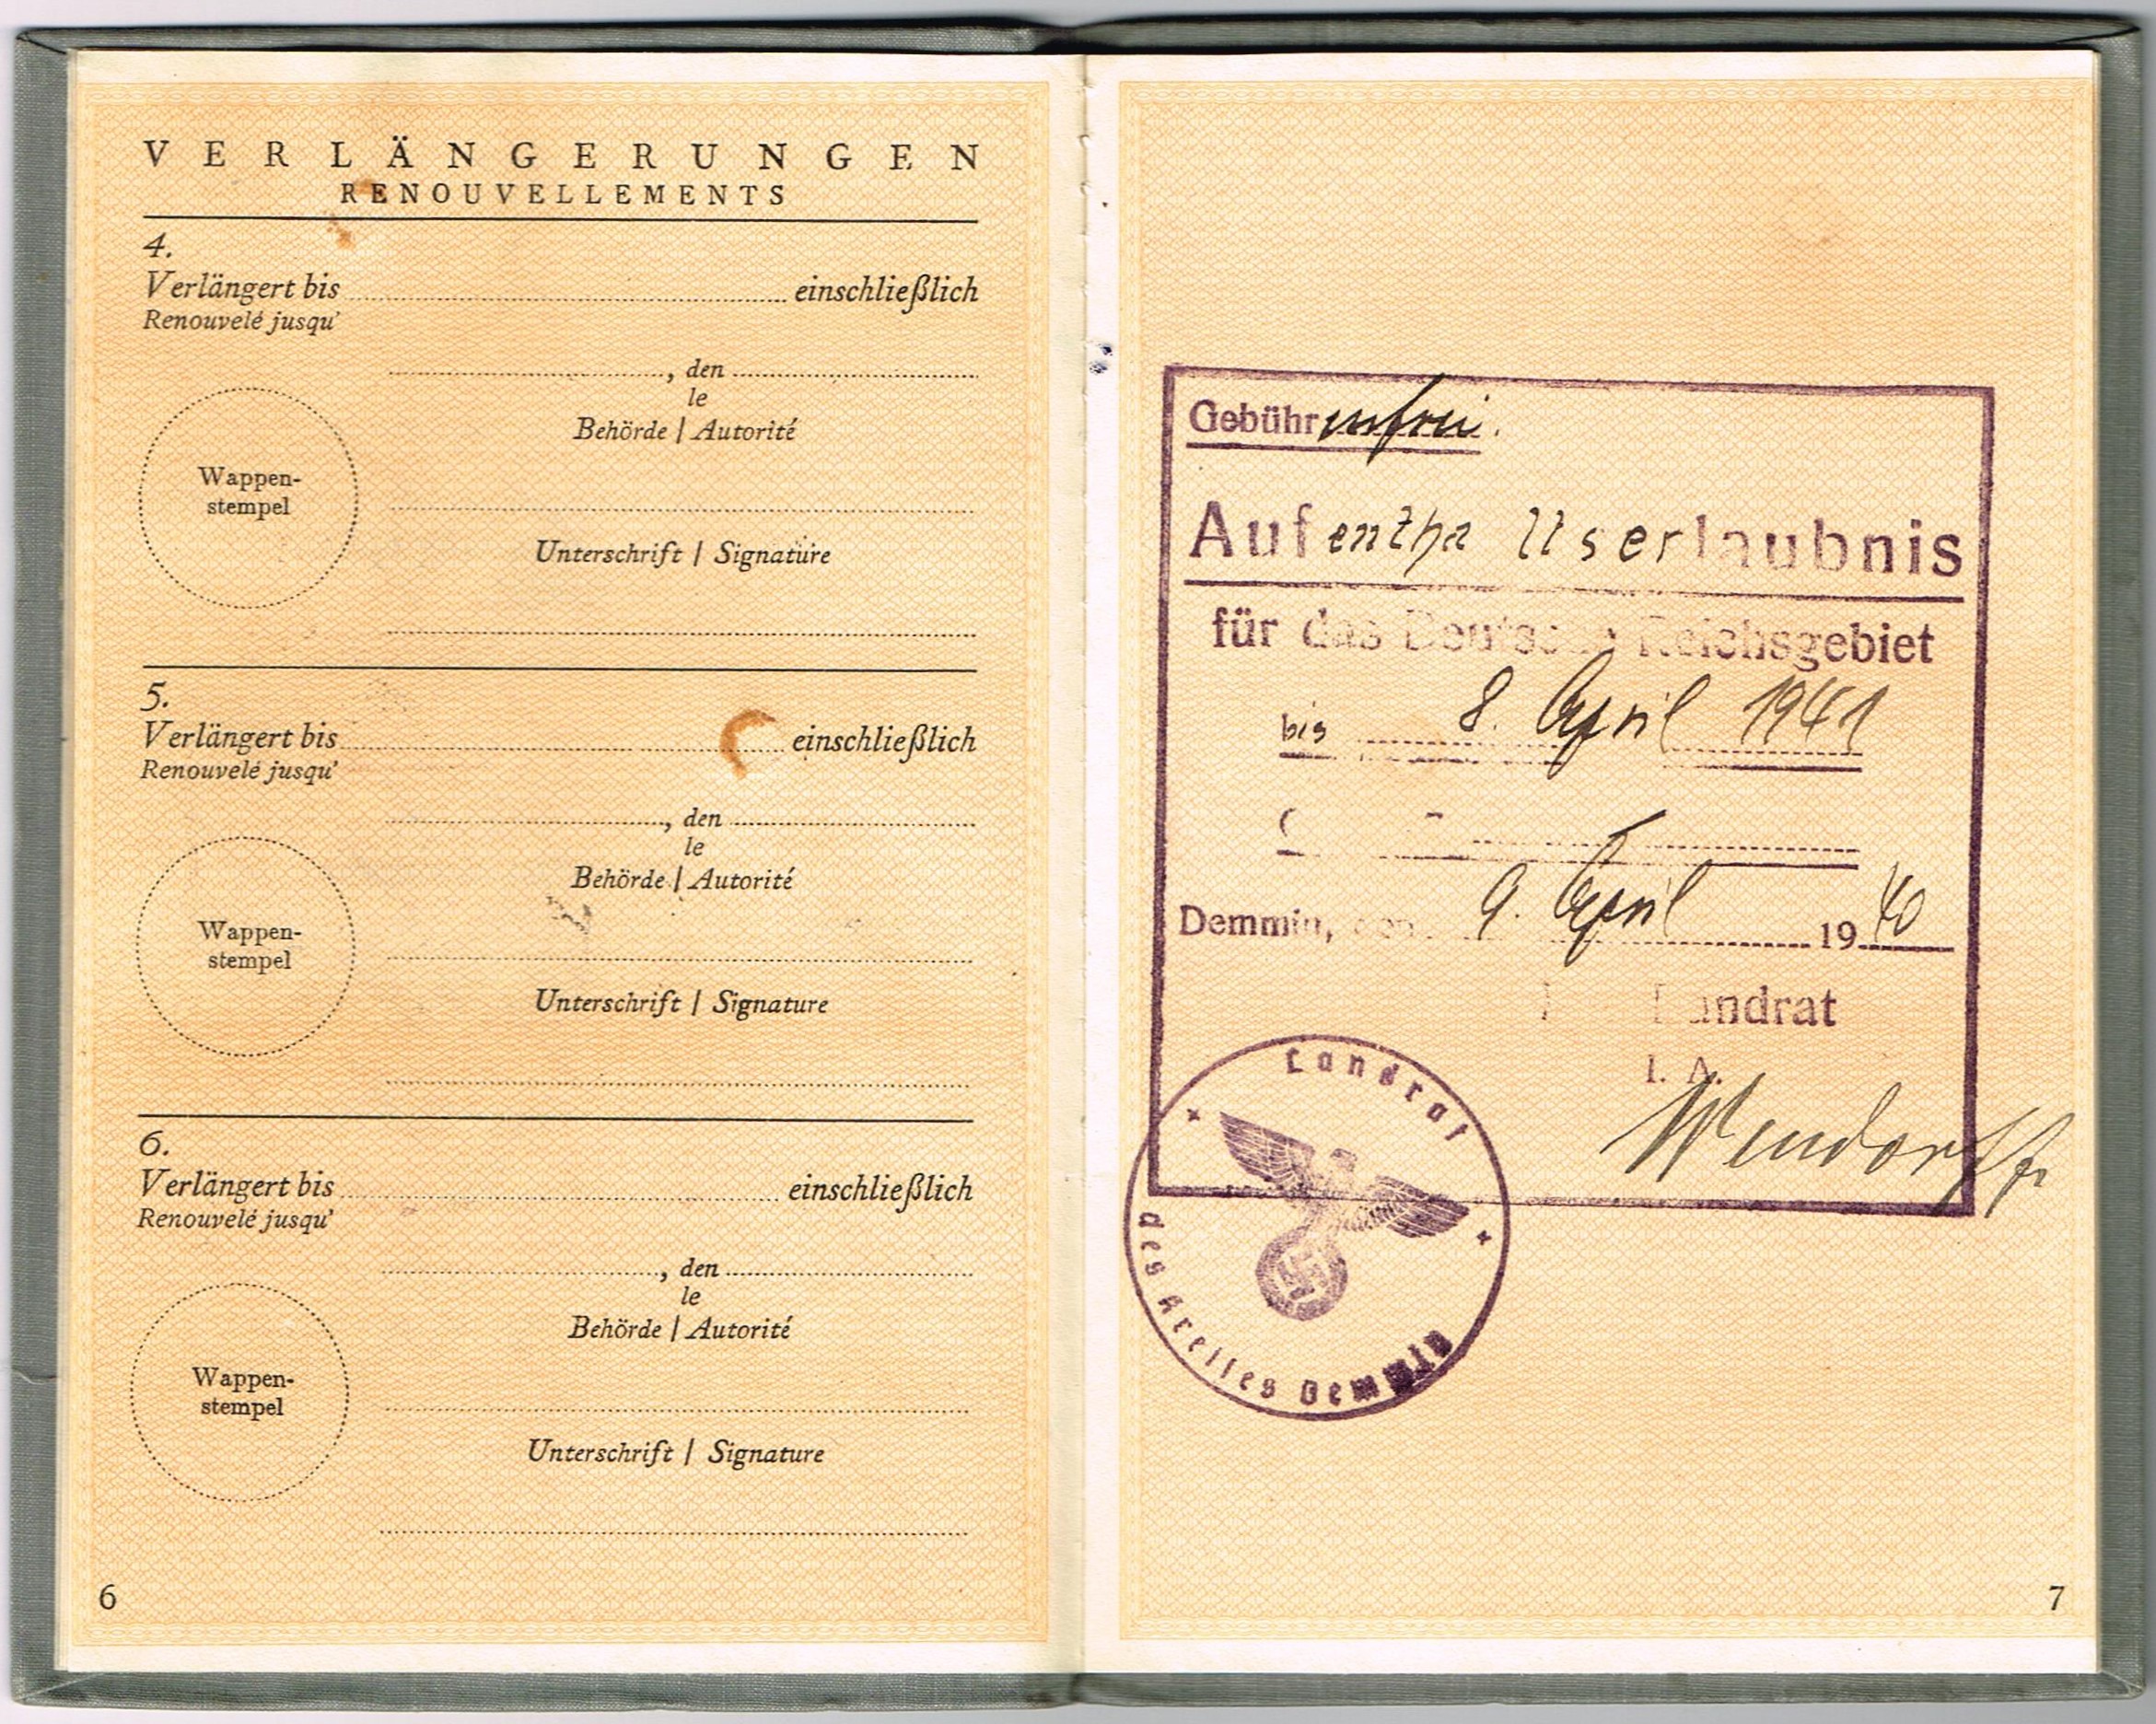 VERLÄNGERUNGEN
RENOUVELLEMENTS
4.
Verlängert bis einschließlich
Renouvelé jusqu'
, den
le
Behörde | Autorité
Wappen-
stempel
Unterschrift | Signature
5.
Verlängert bis einschließlich
Renouvelé jusqu'
, den
le
Behörde | Autorité
Wappen-
stempel
Unterschrift | Signature
6.
Verlängert bis einschließlich
Renouvelé jusqu'
, den
le
Behörde | Autorité
Wappen-
stempel
Unterschrift | Signature
6
Gebührenfrei.
Aufenthaltserlaubnis
für das Deutsche Reichsgebiet
bis 8. April 1941
Demmin, den 9. April 1940
Landrat
I. A.
Wendorff
Landrat
des Kreises Demmin
7